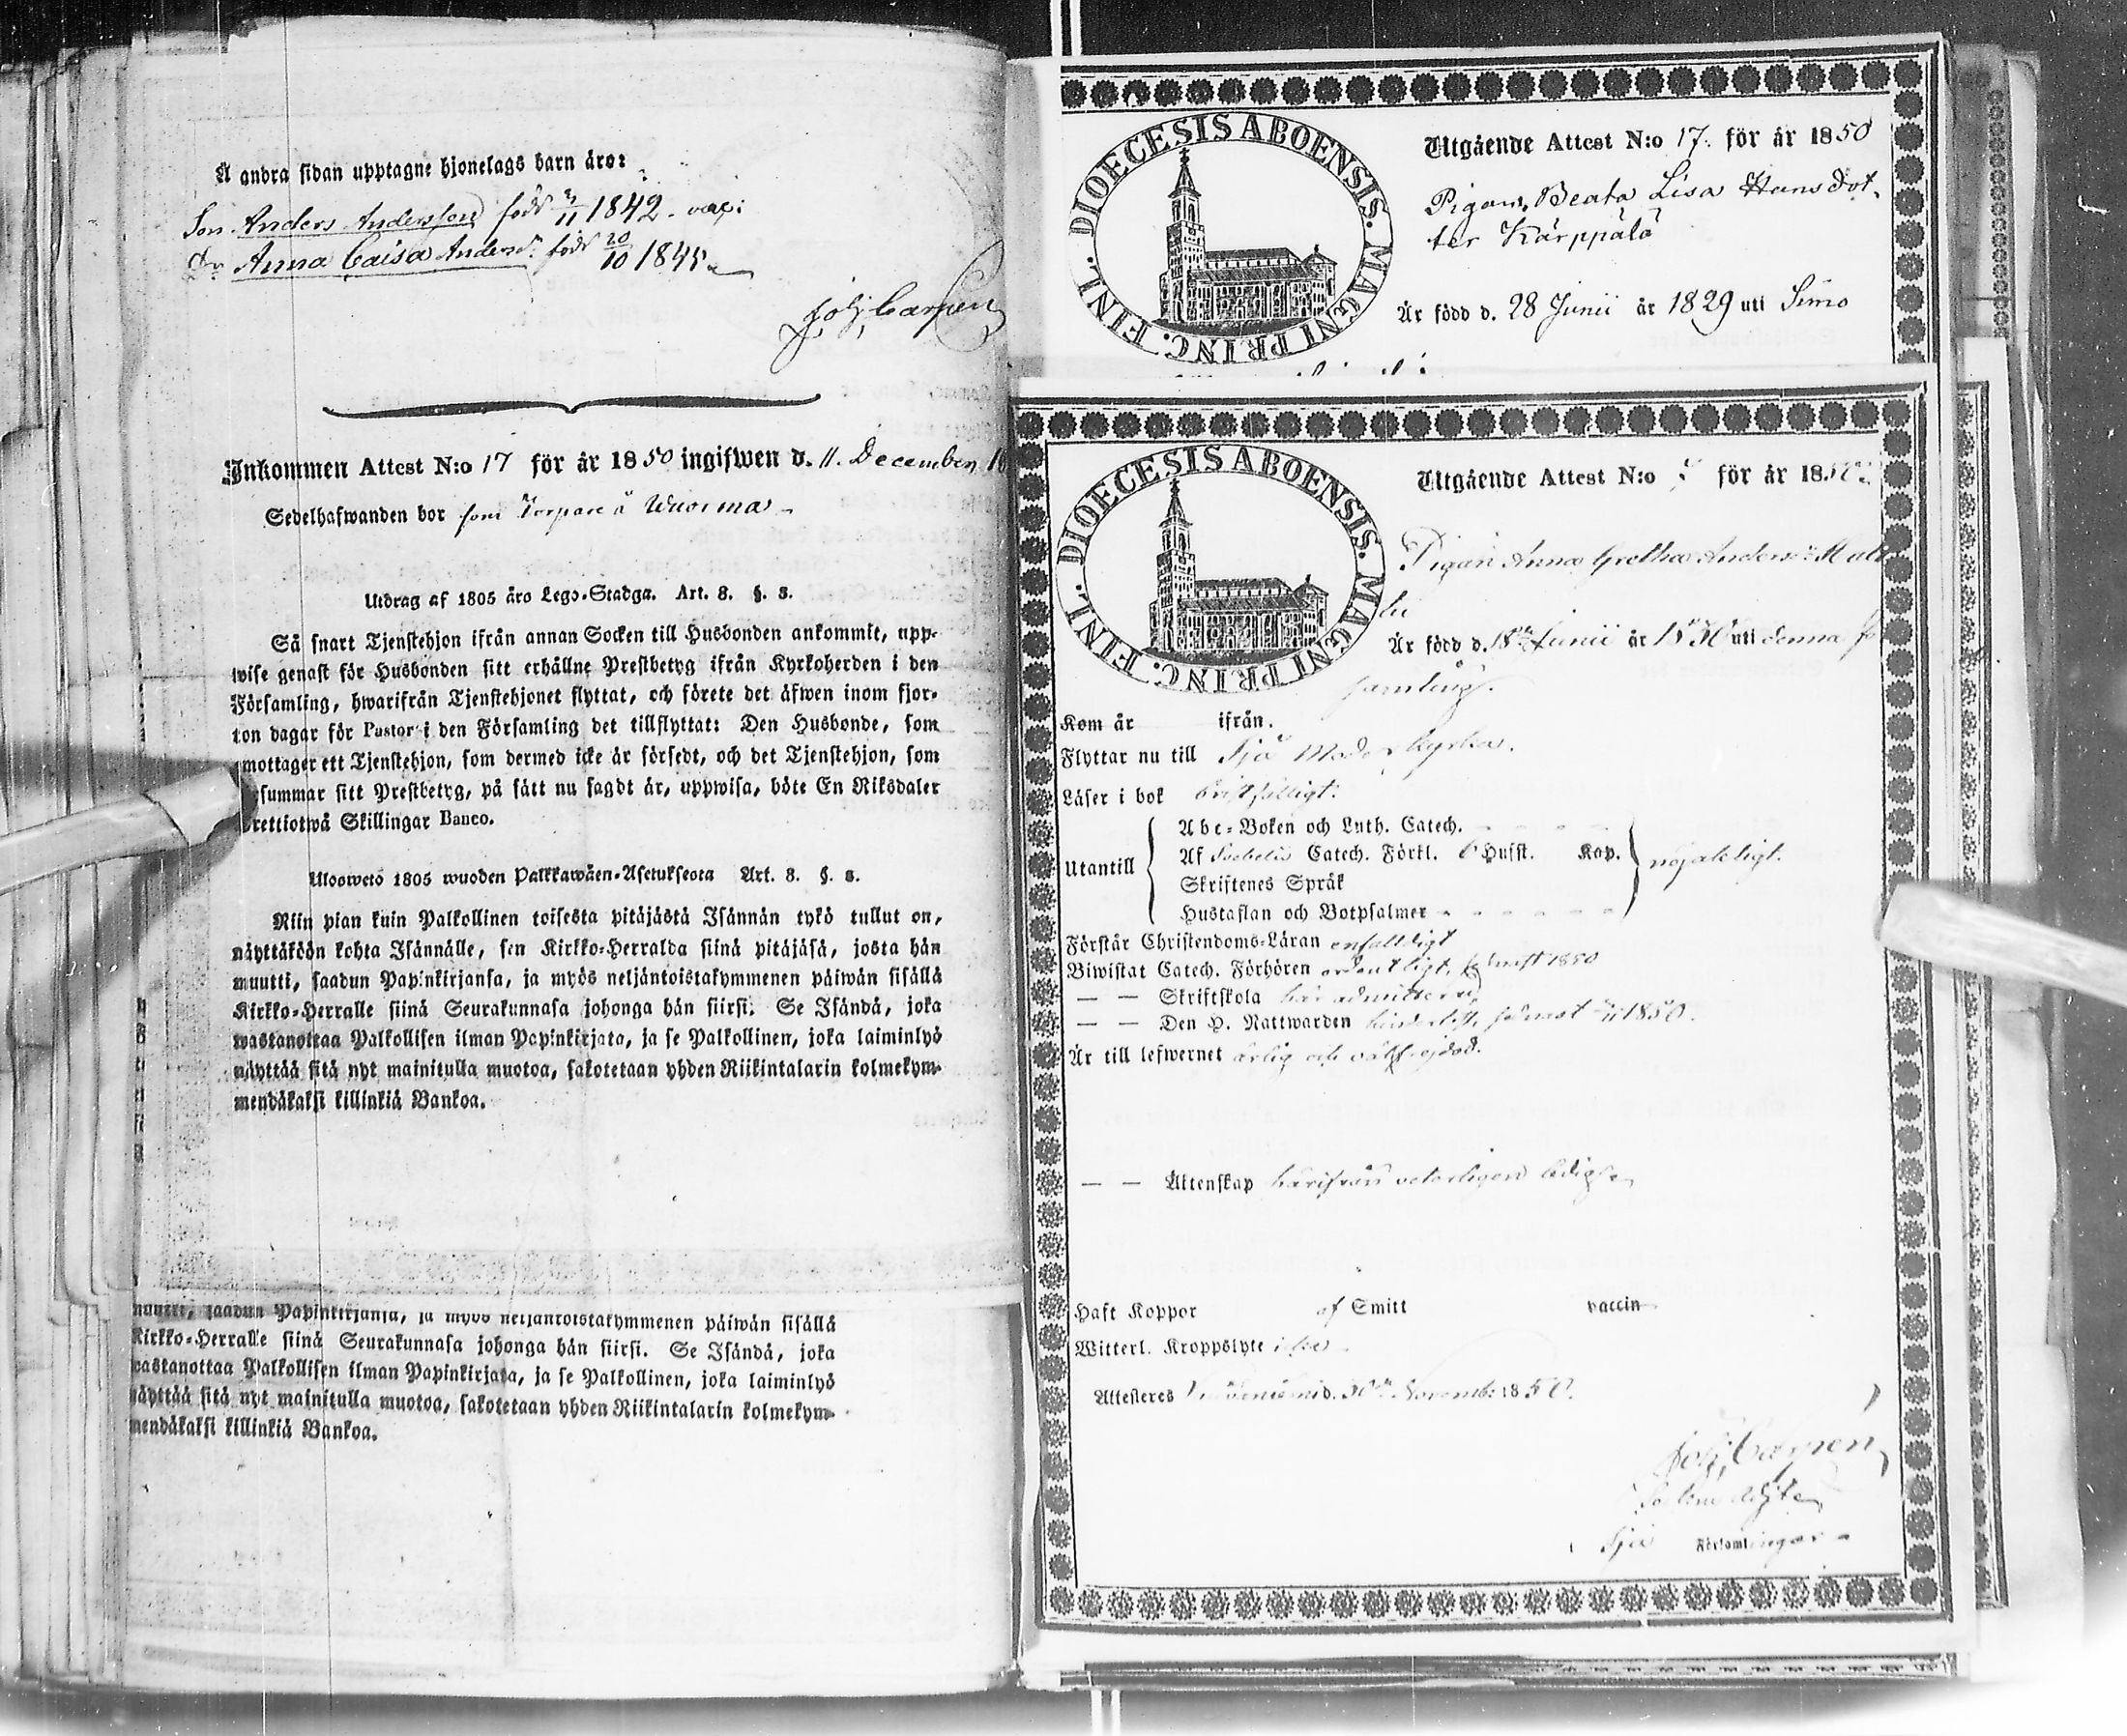 Å andra sidan upptagne hjonelags barn äro:
Son Anders Andersson född 3/11 1842. vac:
Dr Anna Caisa Andersdr född 20/10 1845.
Joh; Carpén
Inkommen Attest N:o 17 för år 1850 ingifwen d. 11. December 18
Sedelhafwanden bor som Torpare å Wuorma
Utdrag af 1805 års Lego-Stadga. Art. 8. §. 2.
Så snart Tjenstehjon ifrån annan Socken till Husbonden ankommit, upp-
wise genast för Husbonden sitt erhållne Prestbetyg ifrån Kyrkoherden i den
Församling, hwarifrån Tjenstehjonet flyttat, och förete det äfwen inom fjor-
ton dagar för Pastor i den Församling det tillflyttat: Den Husbonde, som
emottager ett Tjenstehjon, som dermed icke är försedt, och det Tjenstehjon, som
summar sitt Prestbetyg, på sätt nu sagdt är, uppwisa, böte En Riksdaler
trettiotwå Skillingar Banco.
Uloswetö 1805 wuoden Palkkawäen-Asetuksesta Art. 8. §. 2.
Niin pian kuin Palkollinen toisesta pitäjästä Isännän tykö tullut on,
näyttäköön kohta Isännälle, sen Kirkko-Herralda siinä pitäjäsä, josta hän
muutti, saadun Papinkirjansa, ja myös neljäntoistakymmenen päiwän sisällä
Kirkko-Herralle siinä Seurakunnasa johonga hän siirsi. Se Isändä, joka
wastanottaa Palkollisen ilman Papinkirjata, ja se Palkollinen, joka laiminlyö
näyttää sitä nyt mainitulla muotoa, sakotetaan yhden Riikintalarin kolmekym-
mendäkaksi killinkiä Bankoa.
muutti, saadun Papinkirjansa, ja myös neljäntoistakymmenen päiwän sisällä
Kirkko-Herralle siinä Seurakunnasa johonga hän siirsi. Se Isändä, joka
wastanottaa Palkollisen ilman Papinkirjata, ja se Palkollinen, joka laiminlyö
näyttää sitä nyt mainitulla muotoa, sakotetaan yhden Riikintalarin kolmekym-
mendäkaksi killinkiä Bankoa.
DIOECESIS ABOENSIS. MAGNI PRINC. FINL.
Utgående Attest N:o 17. för år 1850
Pigan Beata Lisa Hansdot-
ter Kärppälä
Är född d. 28 Junii år 1829 uti Simo
DIOECESIS ABOENSIS. MAGNI PRINC. FINL.
Utgående Attest N:o för år 1850.
Pigan Anna Gretha Andersdr
Är född d. 18de Junii år 1830 uti denna för
samling.
Kom år ifrån.
Flyttar nu till Ijo Moderkyrka.
Läser i bok bristfälligt.
Utantill
Abc-Boken och Luth. Catech.
Af Svebelii Catech. Förkl. 6 Hufst. Kap. nöjaktigt.
Skriftenes Språk
Hustaflan och Botpsalmer
Förstår Christendoms-Läran enfaldigt
Biwistat Catech. Förhören ordentligt, sednast 1850
— — Skriftskola här admitterad
— — Den H. Nattwarden sednast 1850.
Är till lefwernet ärlig och välfrejdad.
— — Äktenskap härifrån veterligen ledig
Haft Koppor af Smitt vaccin
Witterl. Kroppslyte icke
Attesteras d. 30de Novemb: 1850.
Joh; Carpén
Ijo Församlingar